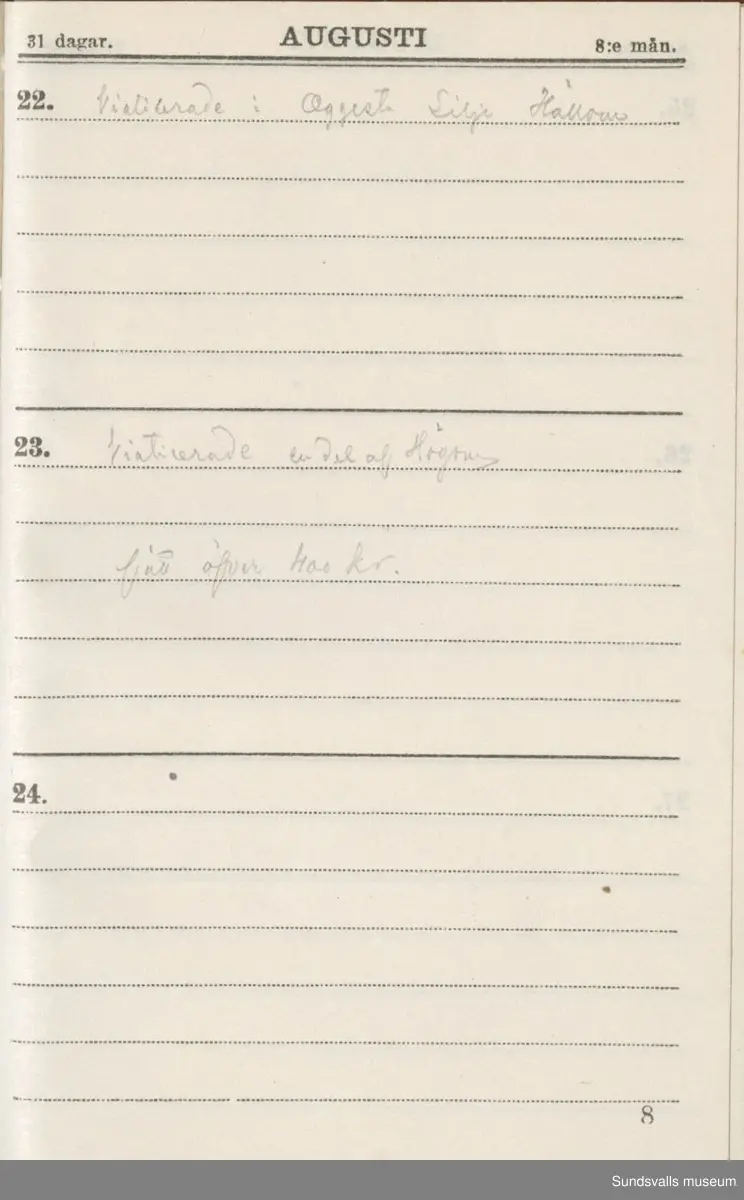 31 dagar. AUGUSTI 8:e mån.
22. Viaticerade i Silje Hållom
23. Viaticerade en del af Högom
öfver 400 kr.
24.
8
Sundsvalls museum